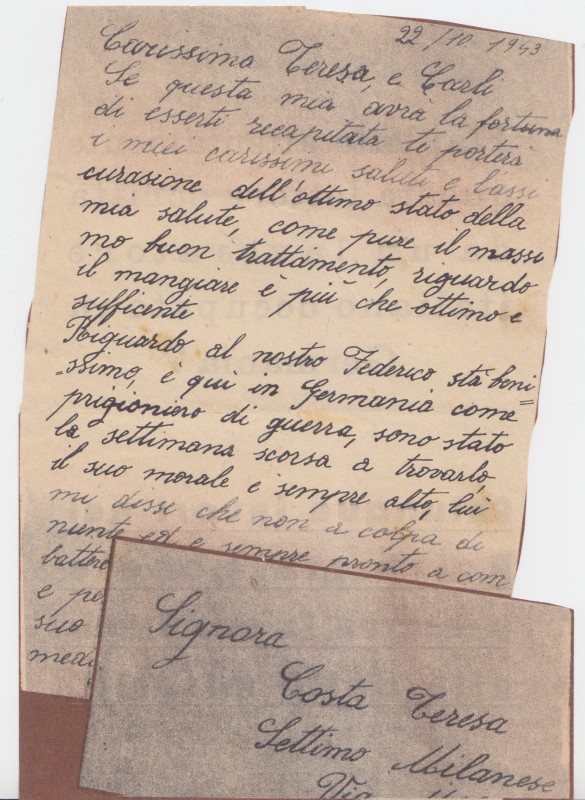 22/10 1943
Carissima Teresa, e Carli
Se questa mia avrà la fortuna
di esserti recapitata ti porterà
i miei carissimi saluti e l'assi
curasione dell'ottimo stato della
mia salute, come pure il massi
mo buon trattamento, riguardo
il mangiare è più che ottimo e
sufficente
Riguardo al nostro Federico stà beni=
=ssimo, è qui in Germania come
prigioniero di guerra, sono stato
la settimana scorsa a trovarlo,
il suo morale è sempre alto, lui
mi disse che non a colpa di
niente ed è sempre pronto a com
battere
e pe
suo
med
Signora
Costa Teresa
Settimo Milanese
Via